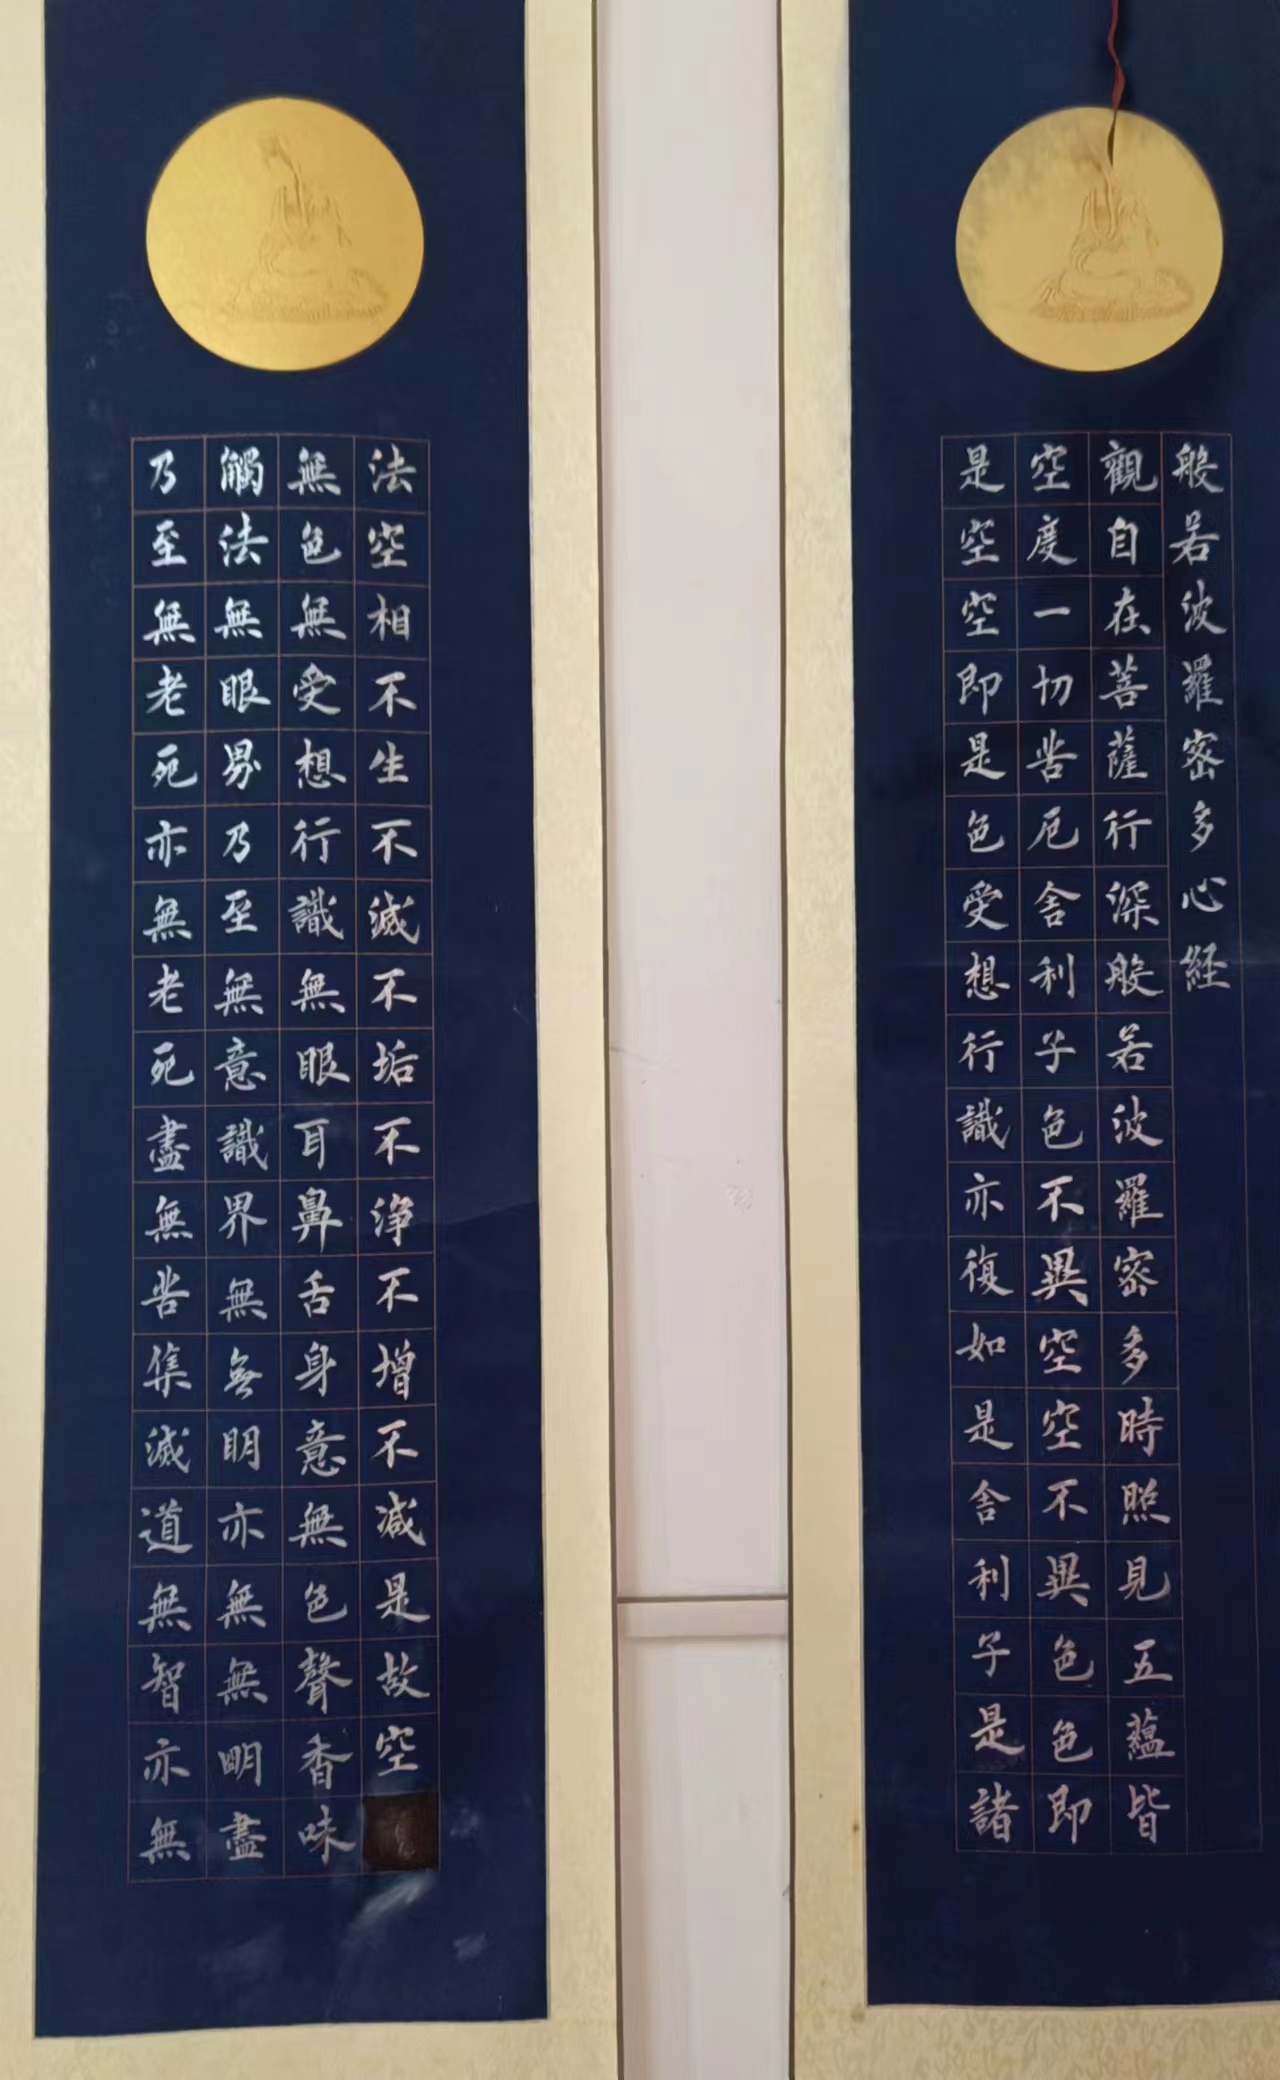 般若波羅密多心経
觀自在菩薩行深般若波羅密多時照見五蘊皆
空度一切苦厄舍利子色不異空空不異色色即
是空空即是色受想行識亦復如是舍利子是諸
法空相不生不滅不垢不浄不增不减是故空
無色無受想行識無眼耳鼻舌身意無色聲香味
觸法無眼界乃至無意識界無無明亦無無明盡
乃至無老死亦無老死盡無苦集滅道無智亦無